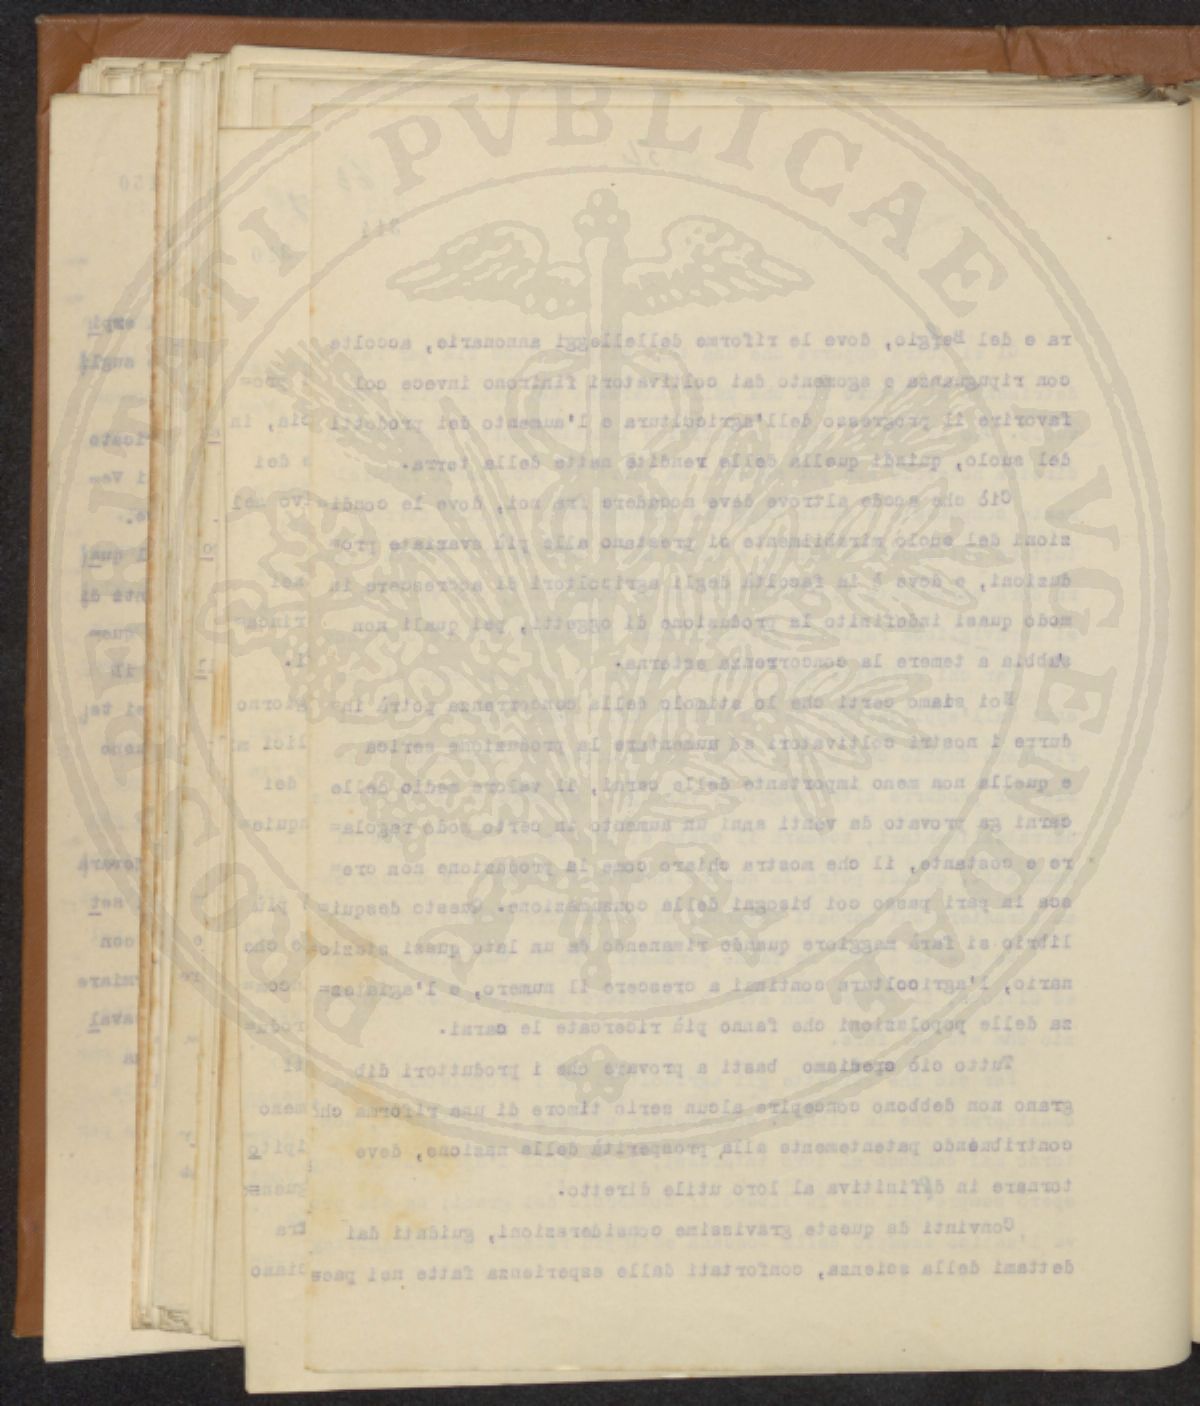 PROSPERITATI PVBLICAE AVGENDAE
344
ra e del Belgio, dove le riforme delleleggi annonarie, accolte
con ripugnanza e sgomento dai coltivatori finirono invece col
favorire il progresso dell'agricoltura e l'aumento dei prodotti
del suolo, quindi quella delle rendite nette della terra.
Ciò che accde altrove deve accadere fra noi, dove le condi=
zioni del suolo mirabilmente si prestano alle più svariate pro=
duzioni, e dove è in facoltà degli agricoltori di accrescere in
modo quasi indefinito la produzione di oggetti, pei quali non
sabbia a temere la concorrenza esterna.
Noi siamo certi che lo stimolo della concorrenza potrà in=
durre i nostri coltivatori ad aumentare la produzione serica
e quella non meno importante delle carni, il valore medio delle
carni ga provato da venti anni un aumento in certo modo regola=
re e costante, il che mostra chiaro come la produzione non cre=
sca in pari passo coi bisogni della consumazione. Questo desqui=
librio si farà maggiore quando rimanendo da un lato quasi stazio=
nario, l'agricoltura continui a crescere il numero, e l'agiatez=
za delle popolazioni che fanno più ricercate le carni.
Tutto ciò crediamo basti a provare che i produttori dib
grano non debbono concepire alcun serio timore di una riforma che
contribuendo patentemente alla prosperità della nazione, deve
tornare in diffinitiva al loro utile diretto.
Convinti da queste gravissime considerazioni, guidati dai
dettami della scienza, confortati dalle esperienza fatte nei pae=